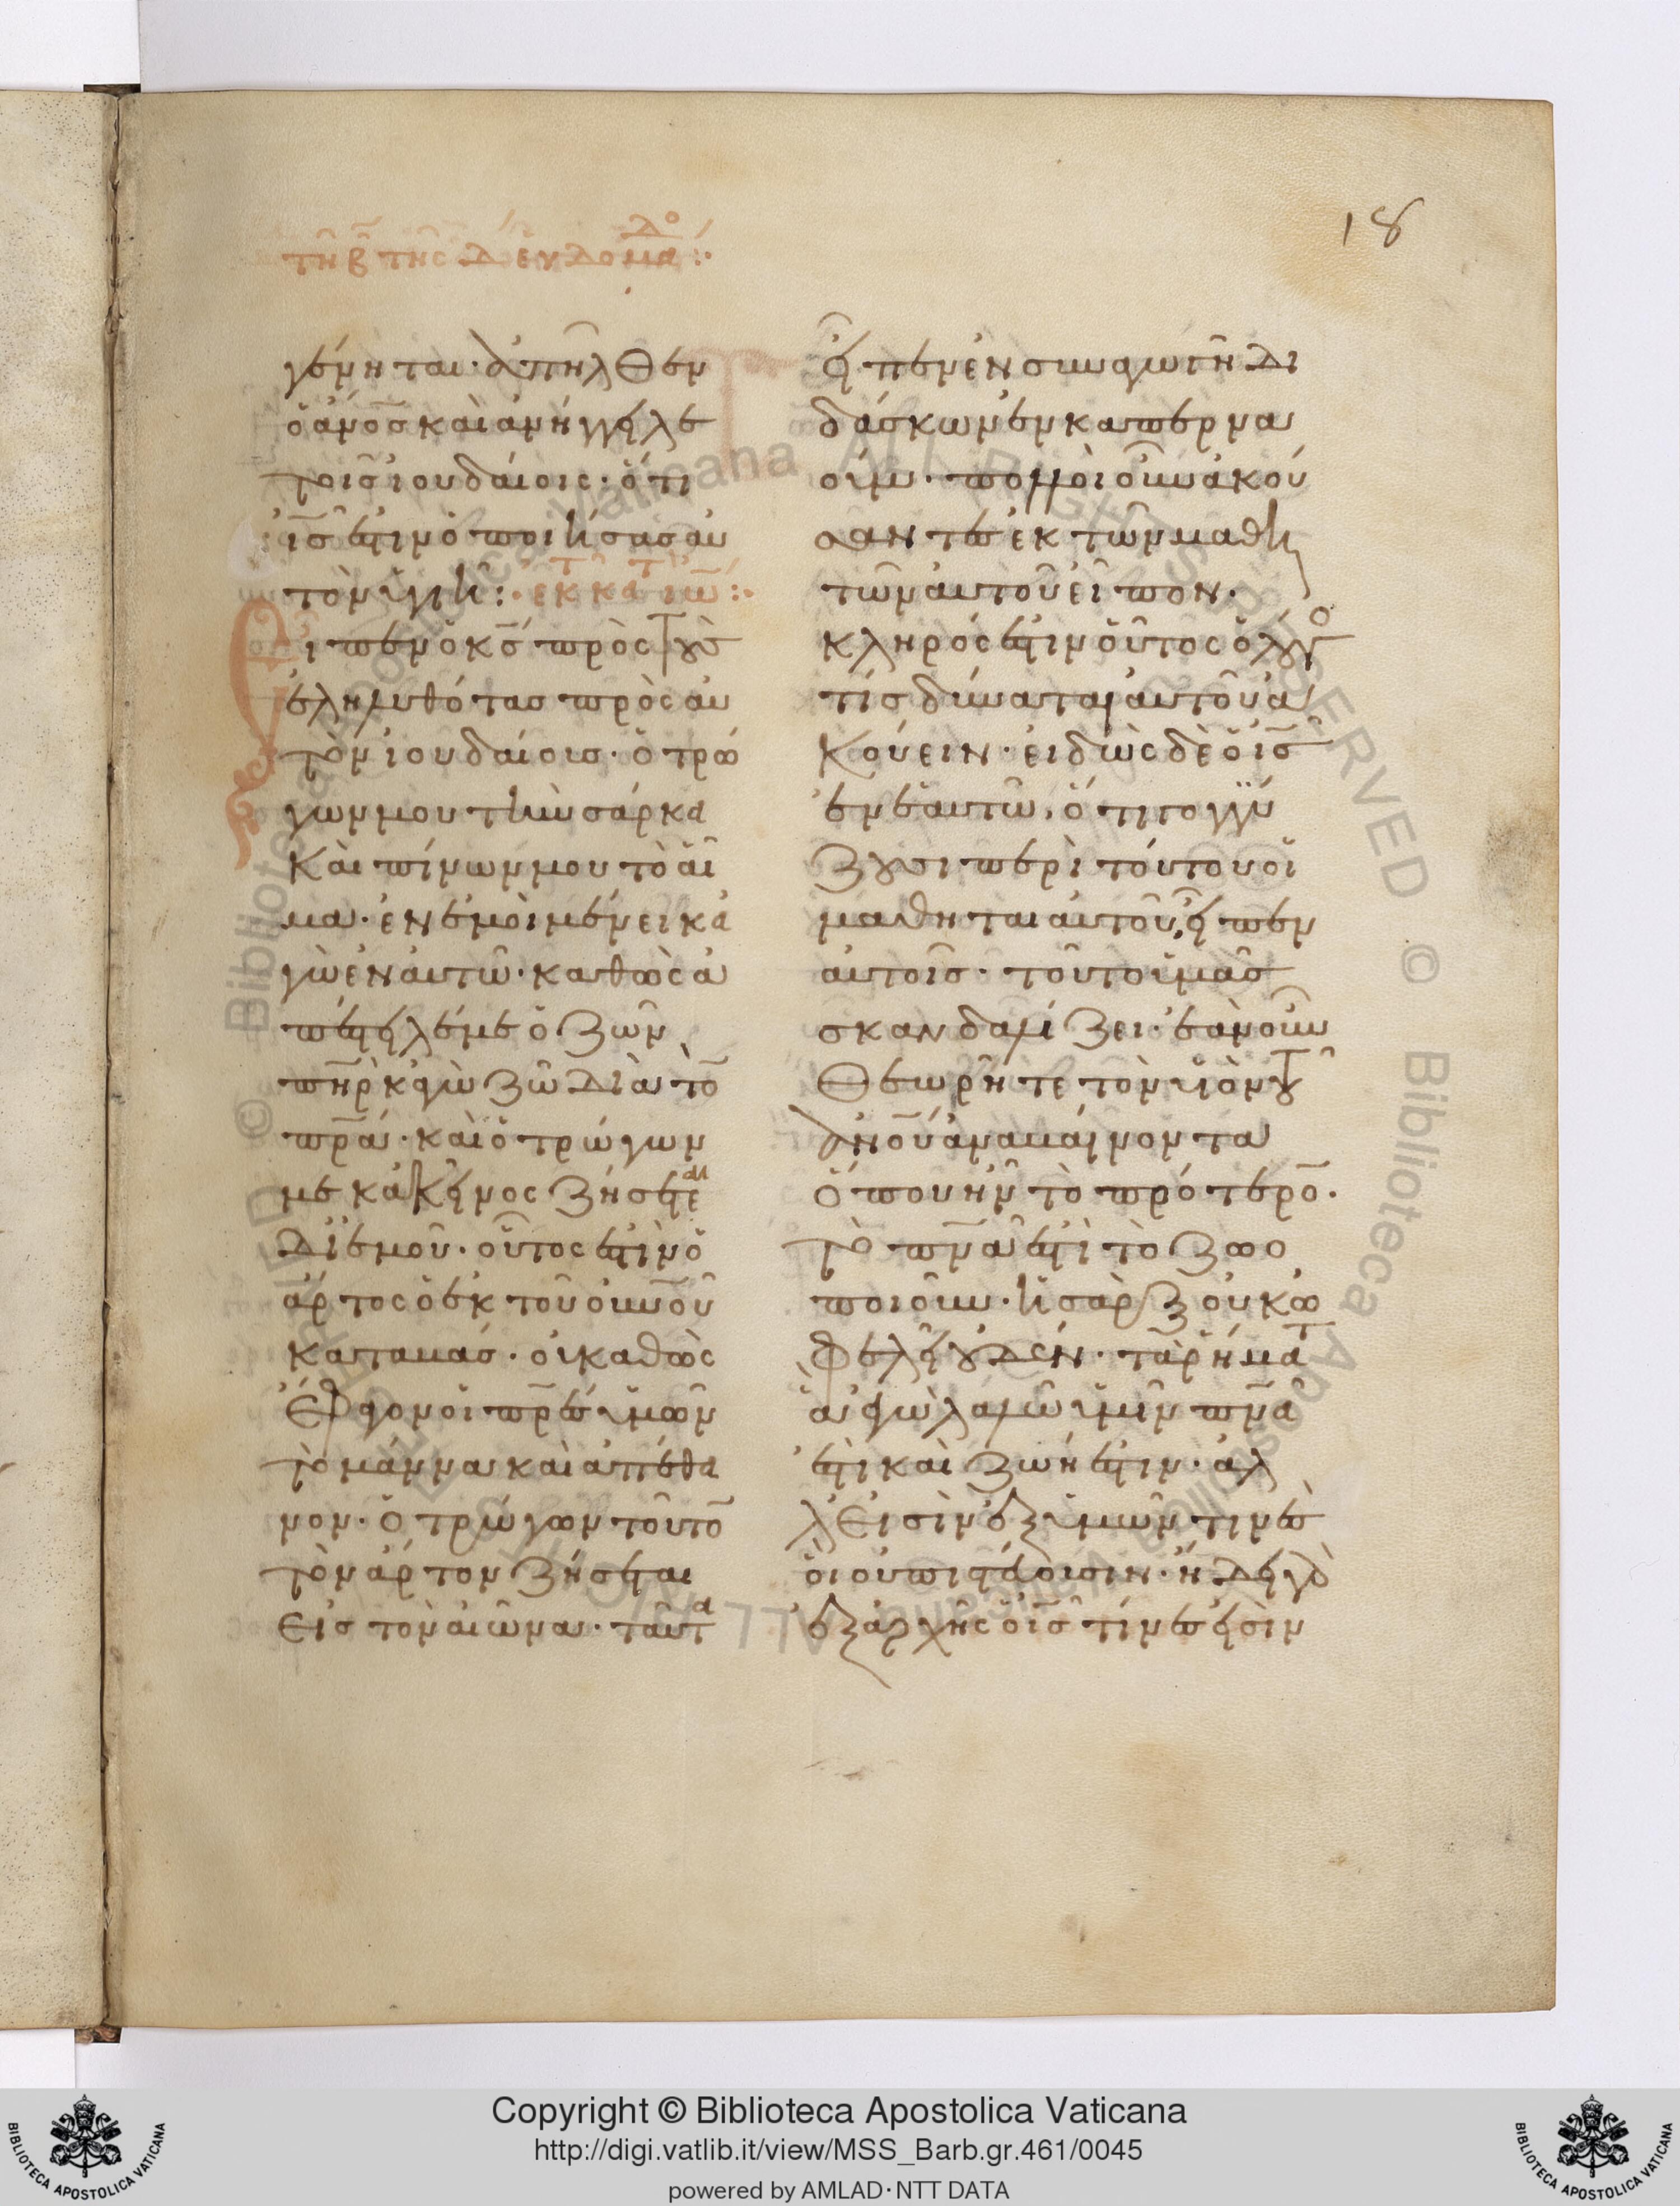 18
τῆ β τῆς Δ ἑβδομάδο:·
γένηται· ἀπῆλθεν
ὁ ἄν̅ο̅σ̅ καὶ ἀνήγγειλε
τοῖς ἰουδαίοις· ὅτι
ι̅ς̅ ἐστὶν ὁ ποιήσας αὐ
τὸν ὑγιῆ:· ἐκ κατ ιω̅:·
Εἶπεν ὁ κ̅ς̅ πρὸς τοὺς
ἐληλυθότας πρὸς αὐ
τὸν ἰουδαίους· ὁ τρώ
γων μου τὴν σάρκα
καὶ πίνων μου τὸ αἷ
μα· ἐν ἐμοὶ μένει κα
γὼ ἐν αὐτῶ· καθὼς ἀ
πέστειλέ με ὁ ζῶν
π̅η̅ρ̅ κἀγὼ ζῶ διὰ τὸ̅
π̅ρ̅α̅· καὶ ὁ τρώγων
με κἀκεῖνος ζήσεται
δι᾽ ἐμοῦ· οὗτος ἐστὶν ὁ
ἄρτος ὁ ἐκ τοῦ ο̅υ̅ν̅ο̅υ̅
καταβάς· οὐ καθὼς
ἔφαγον οἱ π̅ρ̅ε̅ς ὑμῶν
τὸ μάννα καὶ ἀπέθα
νον· ὁ τρώγων τοῦτο̅
τὸν ἄρτον ζήσεται
εἰς τὸν αἰῶνα· ταῦτα
εἶπεν ἐν συναγωγῆ δι
δάσκων ἐν καπερνα
ούμ· πολλοὶ οὖν ἀκού
σαντες ἐκ τῶν μαθη
τῶν αὐτοῦ εἶπον·
σκληρός ἐστιν οὗτος ὁ λόγο
τίς δύναται αὐτοῦ ἀ
κούειν· εἰδὼς δὲ ὁ ι̅ς̅
ἐν ἑαυτῶ, ὅτι γογγύ
ζουσι περὶ τούτου οἱ
μαθηταὶ αὐτοῦ, εἶπεν
αὐτοῖς· τοῦτο ὑμᾶς
σκανδαλίζει· ἐὰν οὖν
θεωρῆτε τὸν υἱὸν τοῦ
α̅ν̅ο̅υ̅ ἀναβαίνοντα
ὅπου ἦν τὸ πρότερο̅·
τὸ π̅ν̅α̅ ἐστὶ τὸ ζωο
ποιοῦν· ἡ σὰρξ οὐκ ὠ
φελεῖ οὐδέν· τὰ ῥήματ
ἃ ἐγὼ λαλῶ ὑμῖν π̅ν̅α̅
ἐστὶ καὶ ζωή ἐστιν· ἀλ
λ᾽ εἰσὶν ἐξ ὑμῶν τινες
οἳ οὐ πιστεύουσιν· ἤδει γὰρ
ἐξ ἀρχῆς ὁ ι̅ς̅ τίνες εἰσὶν
Copyright © Biblioteca Apostolica Vaticana
http://digi.vatlib.it/view/MSS_Barb.gr.461/0045
powered by AMLAD·NTT DATA
BIBLIOTECA APOSTOLICA VATICANA
BIBLIOTECA APOSTOLICA VATICANA